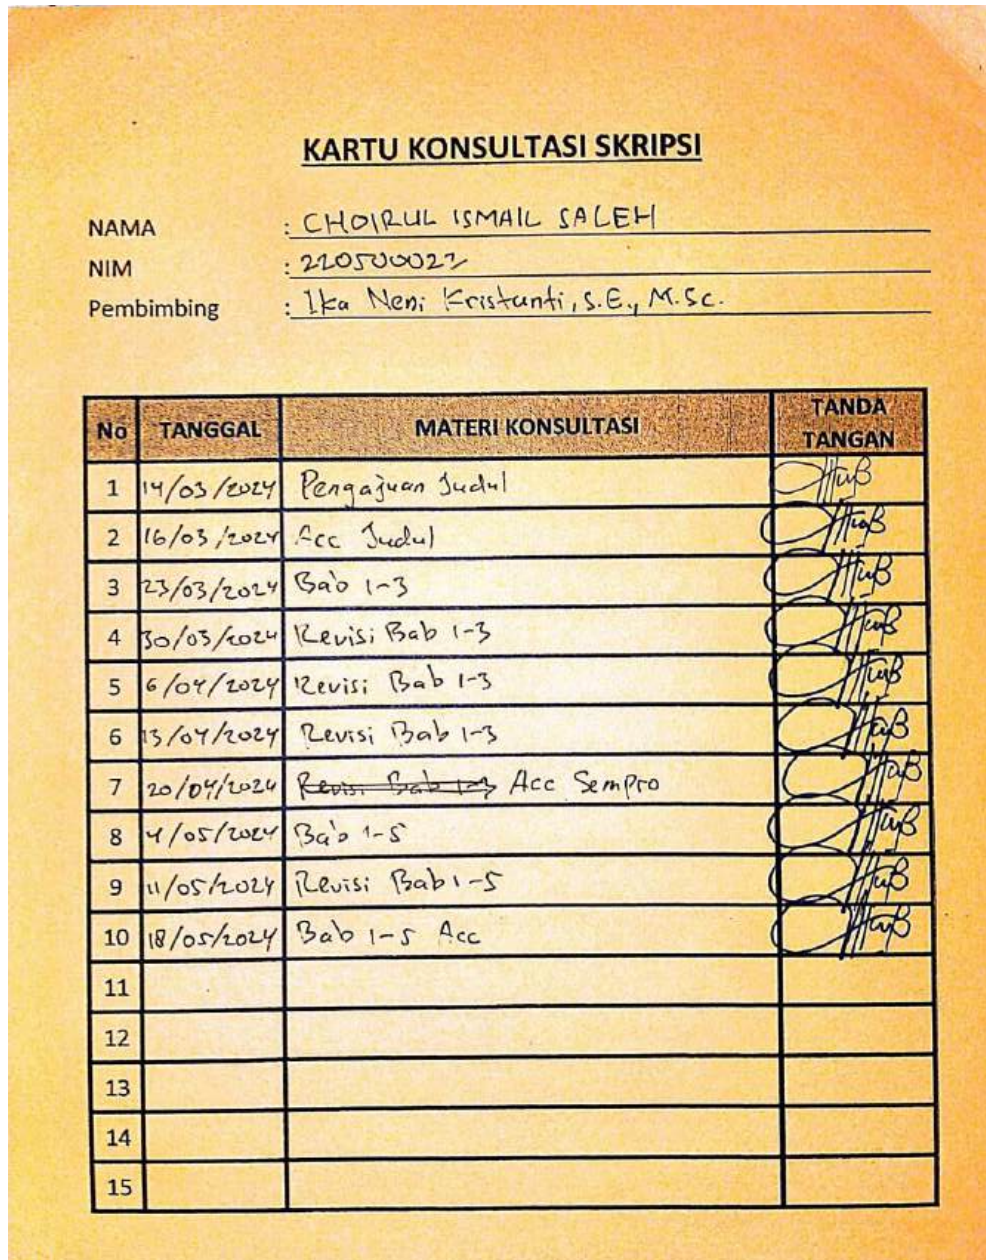 KARTU KONSULTASI SKRIPSI
NAMA : CHOIRUL ISMAIL SALEH
NIM :
Pembimbing : Ika Neni Kristanti, S.E., M.Sc.
No TANGGAL MATERI KONSULTASI TANDA TANGAN
1 14/03/2024 Pengajuan Judul
2 16/03/2024 Acc Judul
3 23/03/2024 Bab 1-3
4 30/03/2024 Revisi Bab 1-3
5 6/04/2024 Revisi Bab 1-3
6 13/04/2024 Revisi Bab 1-3
7 20/04/2024 Revisi Bab 1-3 Acc Sempro
8 4/05/2024 Bab 1-5
9 11/05/2024 Revisi Bab 1-5
10 18/05/2024 Bab 1-5 Acc
11
12
13
14
15